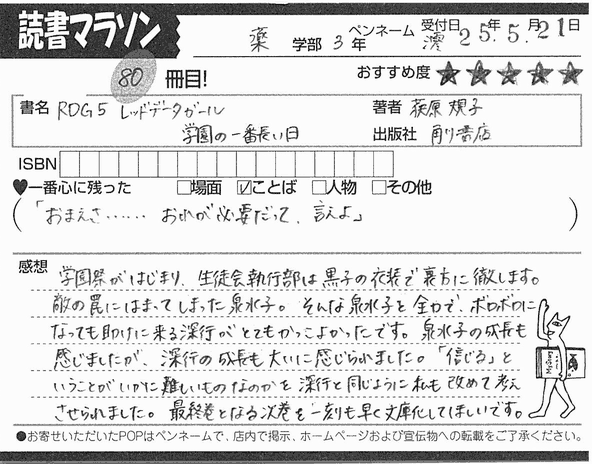 読書マラソン
薬 学部 3 年 ペンネーム 澪 受付日 25年 5月 21日
80 冊目! おすすめ度 ★★★★★
書名 RDG5 レッドデータガール 著者 荻原規子
学園の一番長い日 出版社 角川書店
ISBN
♥一番心に残った □場面 ☑ことば □人物 □その他
(「おまえさ…… おれが必要だって、言えよ」)
感想 学園祭がはじまり、生徒会執行部は黒子の衣装で裏方に徹します。
敵の罠にはまってしまった泉水子。そんな泉水子を全力で、ボロボロに
なっても助けに来る深行がとてもかっこよかったです。泉水子の成長も
感じましたが、深行の成長も大いに感じられました。「信じる」と
いうことがいかに難しいものなのかを深行と同じように私も改めて考え
させられました。最終巻となる次巻を一刻も早く文庫化してほしいです。
●お寄せいただいたPOPはペンネームで、店内で掲示、ホームページおよび宣伝物への転載をご了承ください。